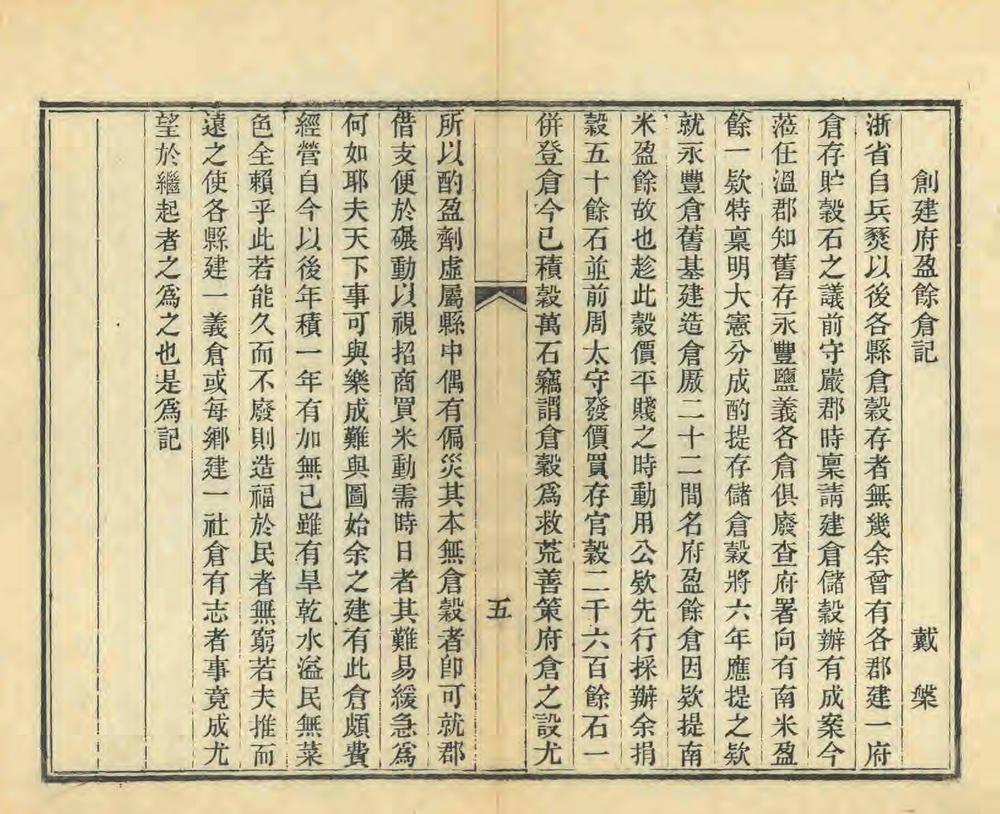 創建府盈餘倉記　戴槃
浙省自兵燹以後各縣倉穀存者無幾余曾有各郡建一府
倉存貯穀石之議前守嚴郡時稟請建倉儲穀辦有成案今
蒞任溫郡知舊存永豐鹽義各倉俱廢查府署向有南米盈
餘一欵特稟明大憲分成酌提存儲倉穀將六年應提之欵
就永豐倉舊基建造倉厫二十二間名府盈餘倉因欵提南
米盈餘故也趁此穀價平賤之時動用公欵先行採辦余捐
穀五十餘石並前周太守發價買存官穀二千六百餘石一
併登倉今已積穀萬石竊謂倉穀爲救荒善策府倉之設尤
五
所以酌盈劑虛屬縣中偶有偏災其本無倉穀者卽可就郡
借支便於碾動以視招商買米動需時日者其難易緩急爲
何如耶夫天下事可與樂成難與圖始余之建有此倉頗費
經營自今以後年積一年有加無已雖有旱乾水溢民無菜
色全賴乎此若能久而不廢則造福於民者無窮若夫推而
遠之使各縣建一義倉或每鄉建一社倉有志者事竟成尤
望於繼起者之爲之也是爲記